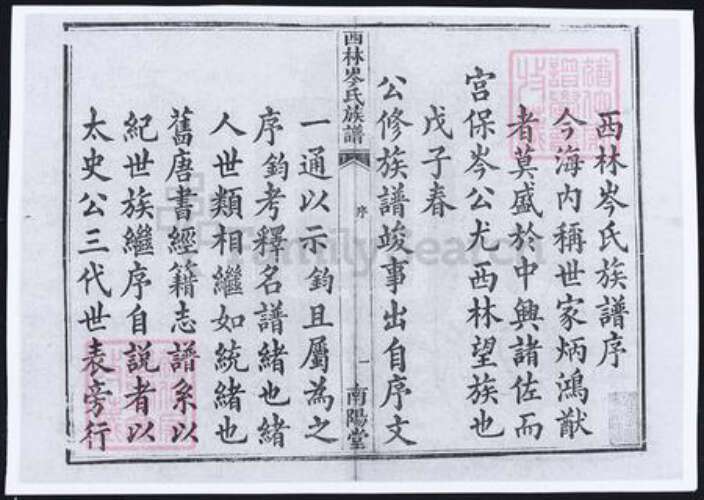 西林岑氏族譜序
今海内稱世家炳鴻猷
者莫盛於中興諸佐而
宮保岑公尤西林望族也
戊子春
公修族譜竣事出自序文
西林岑氏族譜
序
一
南陽堂
一通以示鈞且屬為之
序鈞考釋名譜緒也緒
人世類相繼如統緒也
舊唐書經籍志譜系以
紀世族繼序自說者以
太史公三代世表旁行
FamilySearch